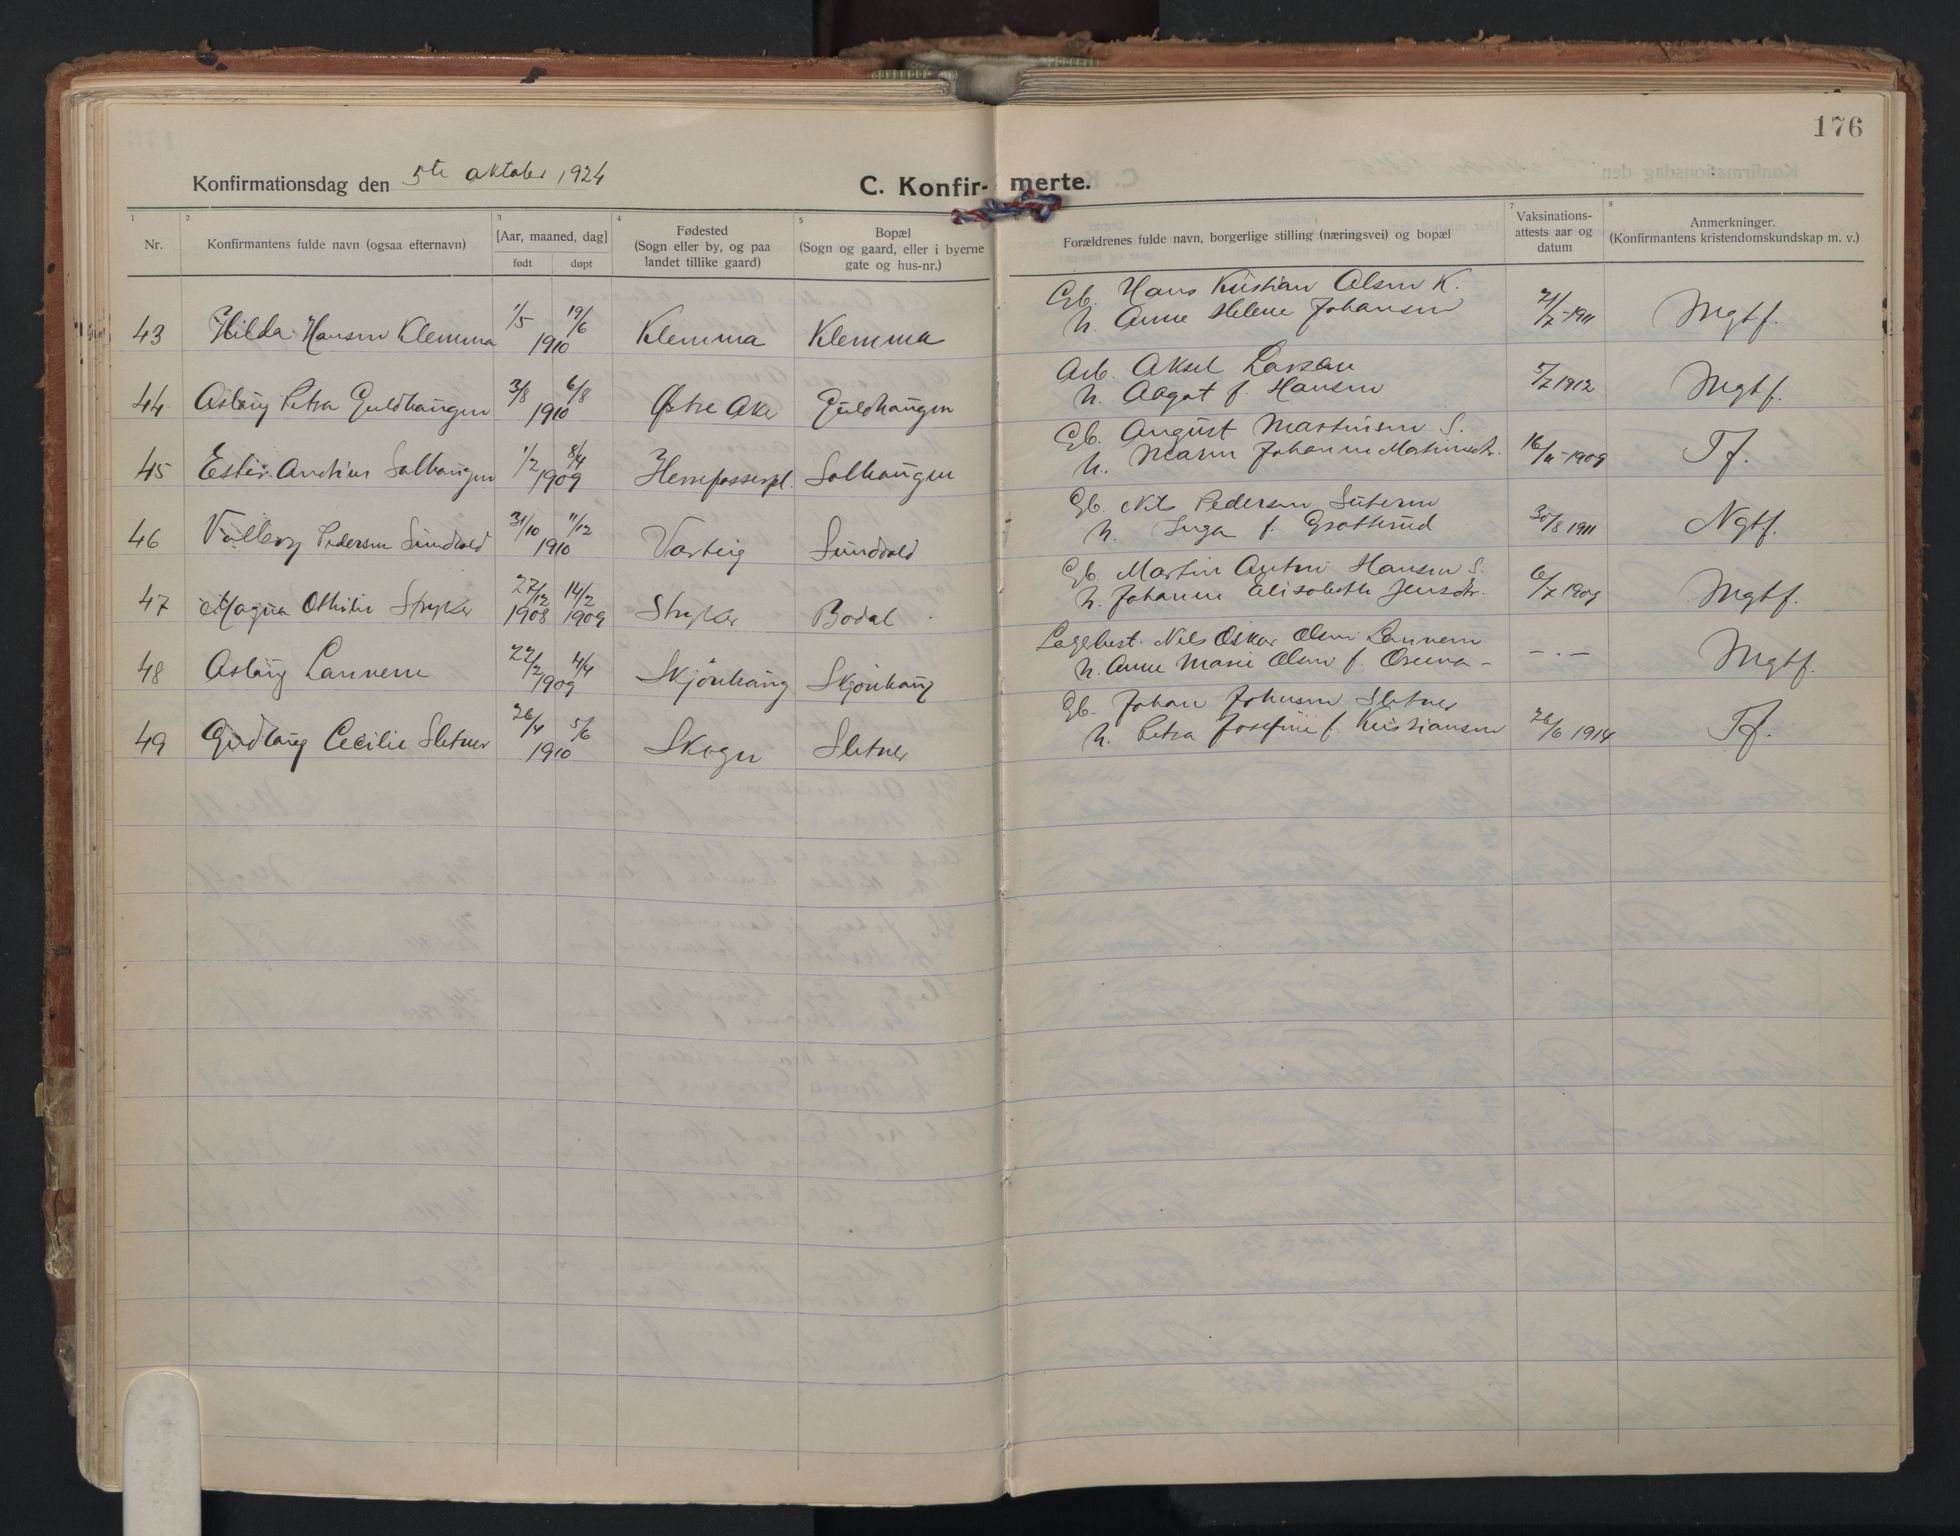 176
Konfirmationsdag den 5te oktober 1924
C. Konfir- merte.
1 2 3 4 5 7 8
Nr.
Konfirmantens fulde navn (ogsaa efternavn)
[Aar, maaned, dag]
født døpt
Fødested
(Sogn eller by, og paa
landet tillike gaard)
Bopæl
(Sogn og gaard, eller i byerne
gate og hus-nr.)
Forældrenes fulde navn, borgerlige stilling (næringsvei) og bopæl
Vaksinations-
attests aar og
datum
Anmerkninger.
(Konfirmantens kristendomskundskap m. v.)
Gb. Hans Kristian Olsen K.
43 Hilda Hansen Klemma 1/5 19/6 1910 Klemma Klemma h. Anne Helene Johansen 21/7-1911 Mgtf.
Arb. Aksel Larsen
44 Aslaug Petra Guldhaugen 3/8 6/8 1910 Østre Aker Guldhaugen h. Aagot f. Hansen 5/7 1912 Mgtf.
Gb. August Martinsen S.
45 Ester Solhaugen 1/2 8/4 1909 Solhaugen h. Maren Johanne Martinsdtr. 16/11-1909 Tf.
Gb. Nils Pedersen
46 Valborg Pedersen Sundvold 31/10 11/12 1910 Varteig Sundvold h. Inga f. Grøtterud 30/8 1911 Ngtf.
Gb. Martin Anton Hansen S.
47 Magna Othilie Stryker 27/12 1908 14/2 1909 Stryker Bodal h. Johanne Elisabeth Jensdtr. 6/7 1909 Mgtf.
Nils Oskar Olsen Lannem
48 Aslaug Lannem 22/2 4/4 1909 Skjönhaug Skjönhaug h. Anne Marie Olsen f. - . - Mgtf.
Gb. Johan Johnsen Sletner
49 Gudlaug Cecilie Sletner 26/4 5/6 1910 Skogn Sletner h. Petra Josefine f. Kristiansen 26/6 1914 Tf.